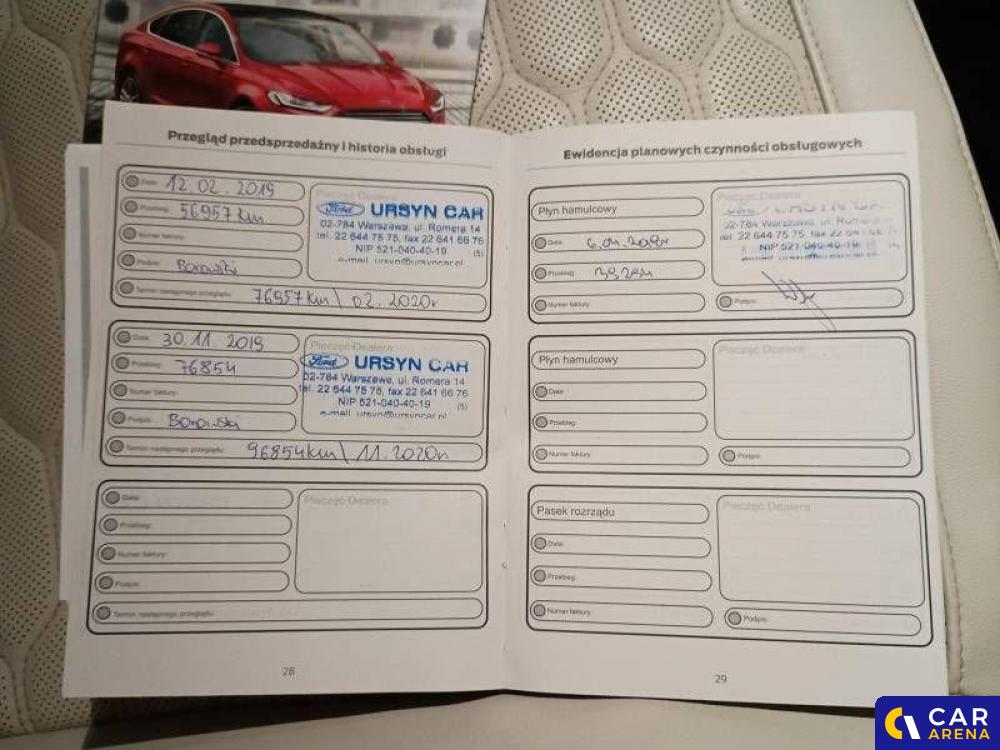 Przegląd przedsprzedażny i historia obsługi
Data: 12.02.2019
Przebieg: 56957 km
Numer faktury:
Podpis: Borowski
Termin następnego przeglądu: 76957 km \ 02.2020r
Pieczęć Dealera
Ford URSYN CAR
02-784 Warszawa, ul. Romera 14
tel. 22 644 75 75, fax 22 641 66 76
NIP 521-040-40-19 (5)
e-mail: ursyn@ursyncar.pl
Data: 30.11.2019
Przebieg: 76854
Numer faktury:
Podpis: Borowski
Termin następnego przeglądu: 96854km \ 11.2020r
Pieczęć Dealera
Ford URSYN CAR
02-784 Warszawa, ul. Romera 14
tel. 22 644 75 75, fax 22 641 66 76
NIP 521-040-40-19 (5)
e-mail: ursyn@ursyncar.pl
Data:
Przebieg:
Numer faktury:
Podpis:
Termin następnego przeglądu:
Pieczęć Dealera
28
Ewidencja planowych czynności obsługowych
Płyn hamulcowy
Data:
Przebieg:
Numer faktury:
Pieczęć Dealera
02-784 Warszawa, ul. Romera
tel. 22 644 75 75, fax 22
NIP 521-040-40-19
Podpis:
Płyn hamulcowy
Data:
Przebieg:
Numer faktury:
Pieczęć Dealera
Podpis:
Pasek rozrządu
Data:
Przebieg:
Numer faktury:
Pieczęć Dealera
Podpis:
29
CAR
ARENA